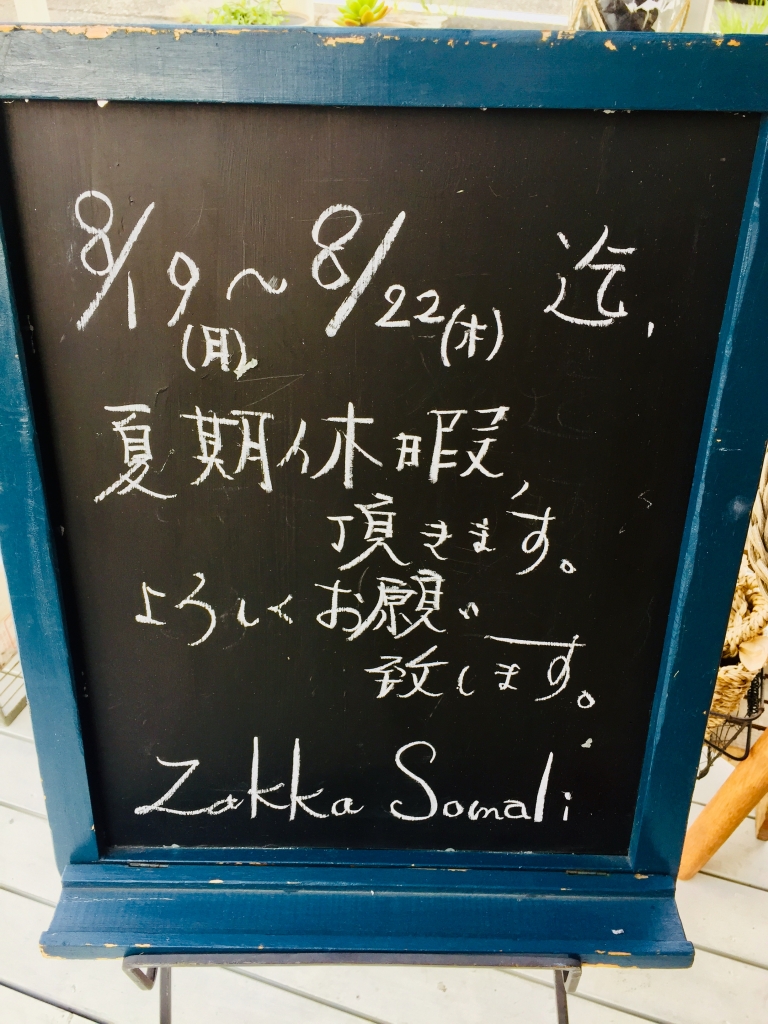 8/19(月)～8/22(木)迄,
夏期休暇,
頂きます。
よろしくお願い
致します。
Zakka Somali